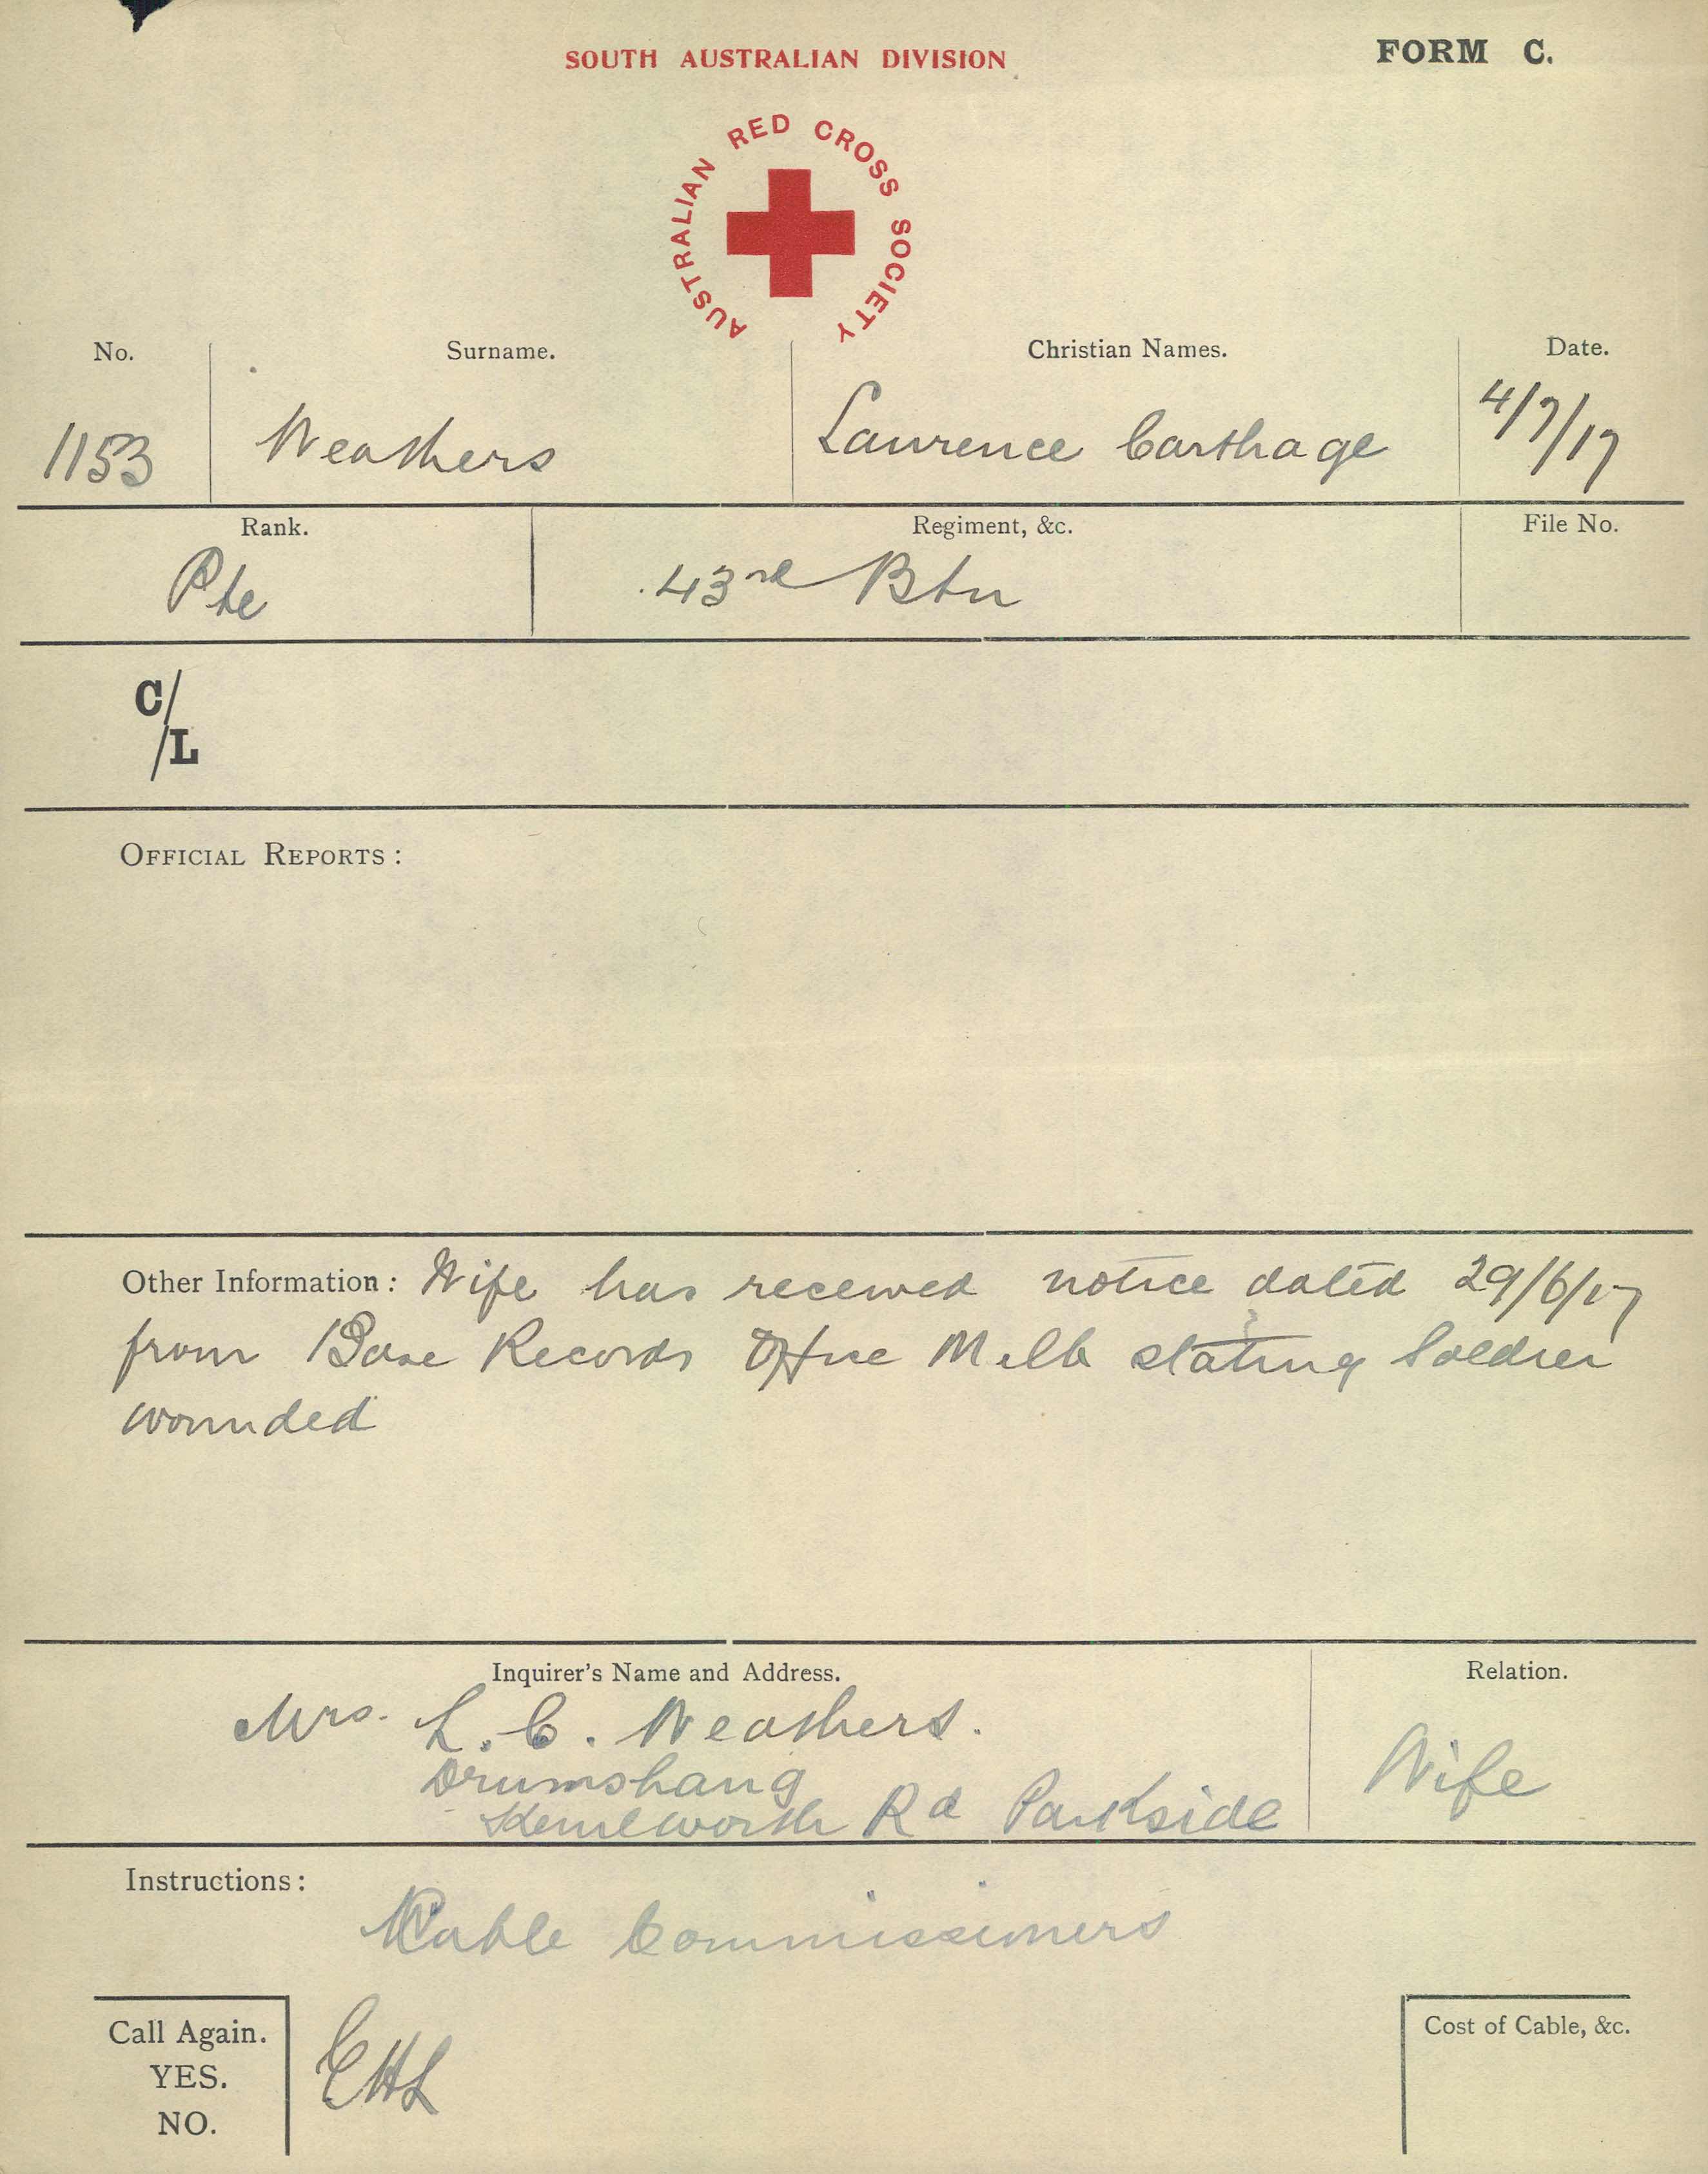 SOUTH AUSTRALIAN DIVISION
FORM C.
AUSTRALIAN RED CROSS SOCIETY
No. Surname. Christian Names. Date.
1153 Weathers Laurence Carthage 4/7/17
Rank. Regiment, &c. File No.
Pte 43rd Btn
C/
/L
OFFICIAL REPORTS :
Other Information : Wife has received notice dated 29/6/17
from Base Records Office Melb stating Soldier
wounded
Inquirer's Name and Address. Relation.
Mrs. L. C. Weathers.
Drumshang Wife
Kenilworth Rd Parkside
Instructions :
Cable Commissioners
Call Again.
YES.
NO.
EHL
Cost of Cable, &c.